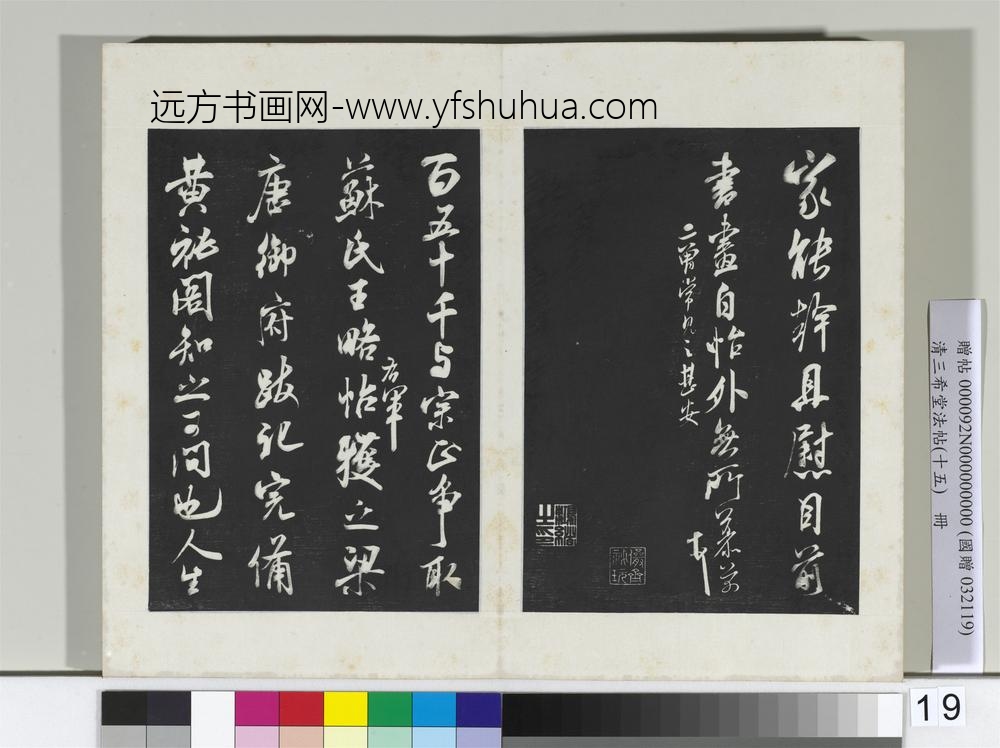 远方书画网-www.yfshuhua.com
家能幹且慰目前
書畫自怡外無所慕
二曾常見之甚安
芾
百五十千与宗正爭取
蘇氏王略帖獲之梁
右軍
唐御府跋記完備
黃祕閣知之可問也人生
贈帖 0000092N000000000 (國贈 032119)
清三希堂法帖(十五) 冊
19